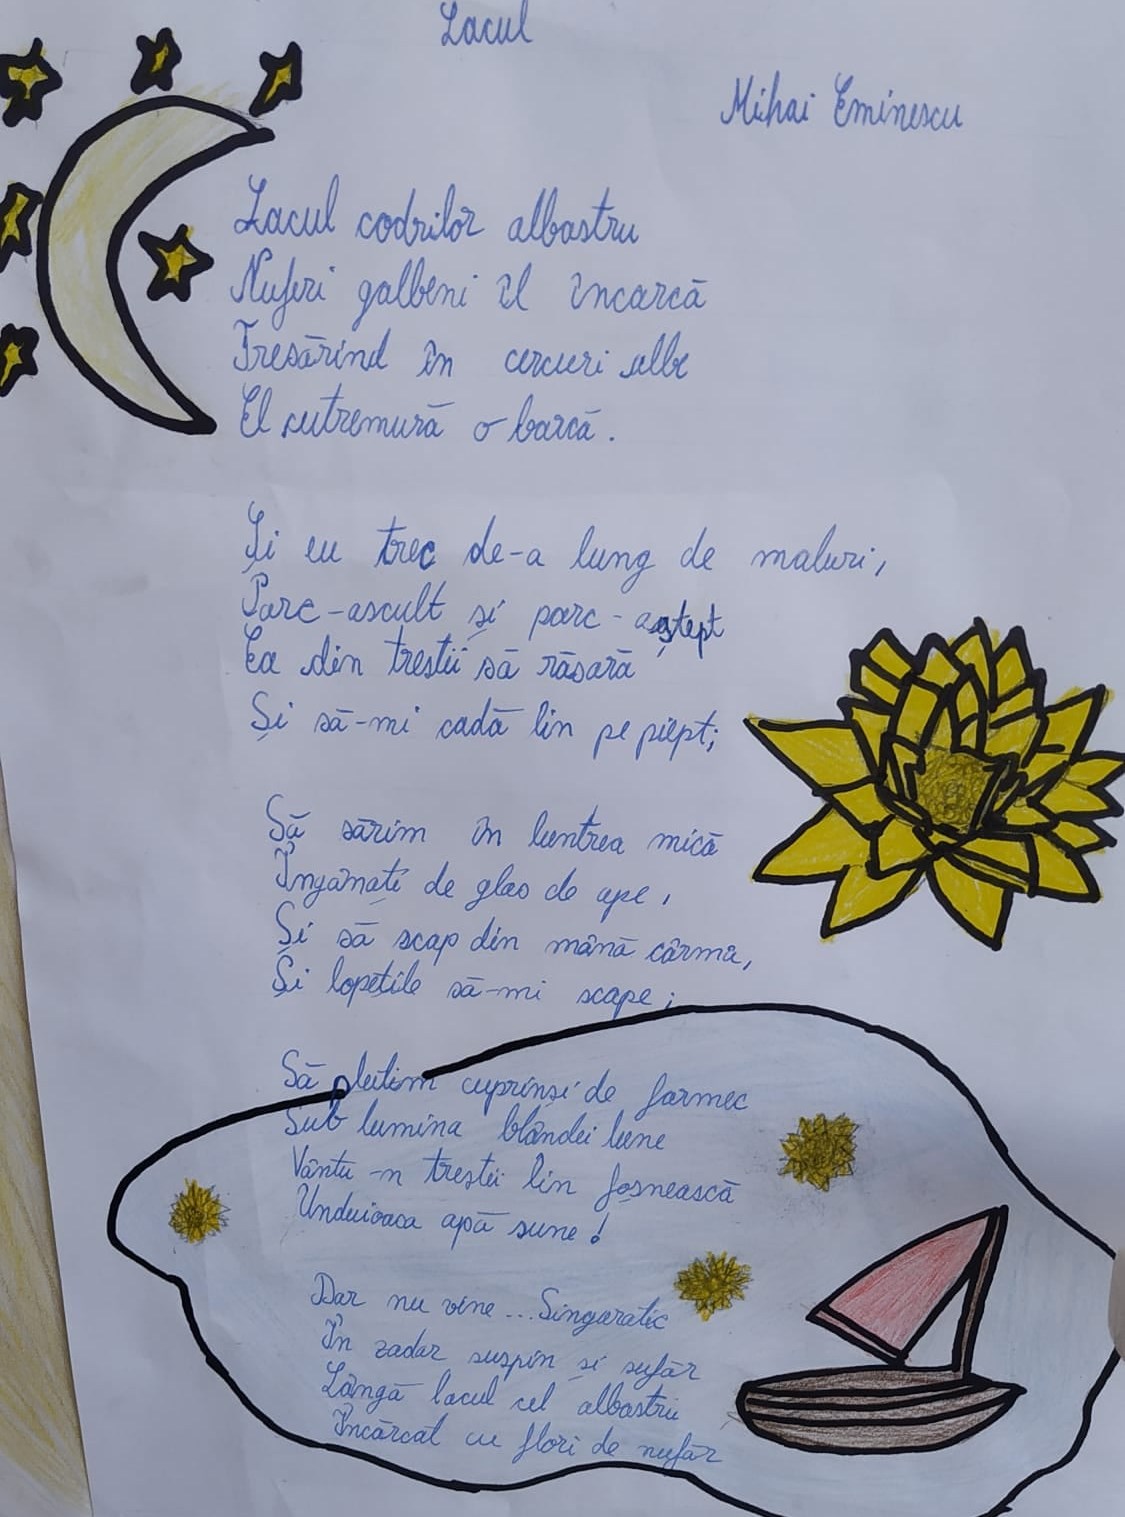 Lacul
Mihai Eminescu
Lacul codrilor albastru
Nuferi galbeni îl încarcă
Tresărind în cercuri albe
El cutremură o barcă.
Și eu trec de-a lung de maluri,
Parc-ascult și parc-aștept
Ea din trestii să răsară
Și să-mi cadă lin pe piept;
Să sărim în luntrea mică
Îngânați de glas de ape,
Și să scap din mână cârma,
Și lopețile să-mi scape;
Să plutim cuprinși de farmec
Sub lumina blândei lune
Vântu-n trestii lin foșnească
Unduioasa apă sune!
Dar nu vine... Singuratic
În zadar suspin și sufăr
Lângă lacul cel albastru
Încărcat cu flori de nufăr